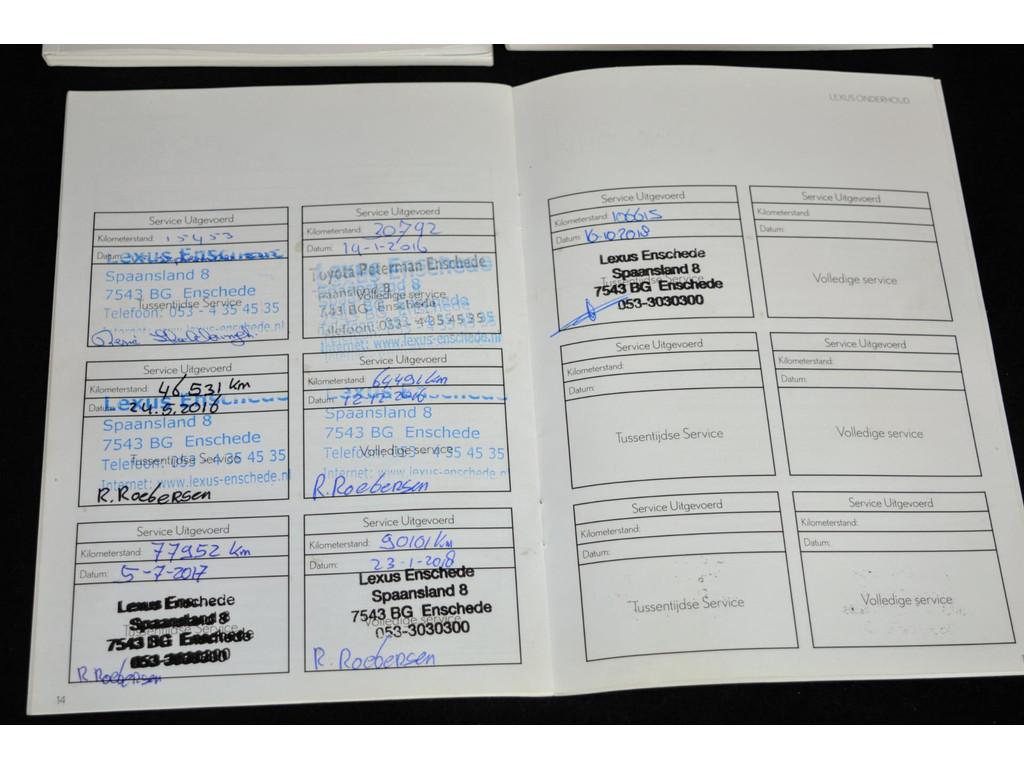 LEXUS ONDERHOUD
Service Uitgevoerd
Kilometerstand: 15453
Datum:
Lexus Enschede
Spaansland 8
7543 BG Enschede
Tussentijdse Service
Telefoon: 053 - 4 35 45 35
Internet: www.lexus-enschede.nl
Service Uitgevoerd
Kilometerstand: 20792
Datum: 14-1-2016
Toyota Poterman Enschede
Spaansland 8
Volledige service
7543 BG Enschede
Telefoon: 053 - 4354535
Internet: www.lexus-enschede.nl
Service Uitgevoerd
Kilometerstand: 46.531 km
Datum: 24.5.2016
Lexus Enschede
Spaansland 8
7543 BG Enschede
Tussentijdse Service
Telefoon: 053 - 4 35 45 35
Internet: www.lexus-enschede.nl
R. Roebersen
Service Uitgevoerd
Kilometerstand: 64491 km
Datum: 12-12-2016
Lexus Enschede
Spaansland 8
7543 BG Enschede
Volledige service
Telefoon: 053 - 4 35 45 35
Internet: www.lexus-enschede.nl
R. Roebersen
Service Uitgevoerd
Kilometerstand: 77952 km
Datum: 5-7-2017
Lexus Enschede
Spaansland 8
Tussentijdse Service
7543 BG Enschede
053-3030300
R. Roebersen
Service Uitgevoerd
Kilometerstand: 90101 km
Datum: 23-1-2018
Lexus Enschede
Spaansland 8
7543 BG Enschede
Volledige service
053-3030300
R. Roebersen
14
Service Uitgevoerd
Kilometerstand: 106615
Datum: 16.10.2018
Lexus Enschede
Spaansland 8
Tussentijdse Service
7543 BG Enschede
053-3030300
Service Uitgevoerd
Kilometerstand:
Datum:
Volledige service
Service Uitgevoerd
Kilometerstand:
Datum:
Tussentijdse Service
Service Uitgevoerd
Kilometerstand:
Datum:
Volledige service
Service Uitgevoerd
Kilometerstand:
Datum:
Tussentijdse Service
Service Uitgevoerd
Kilometerstand:
Datum:
Volledige service